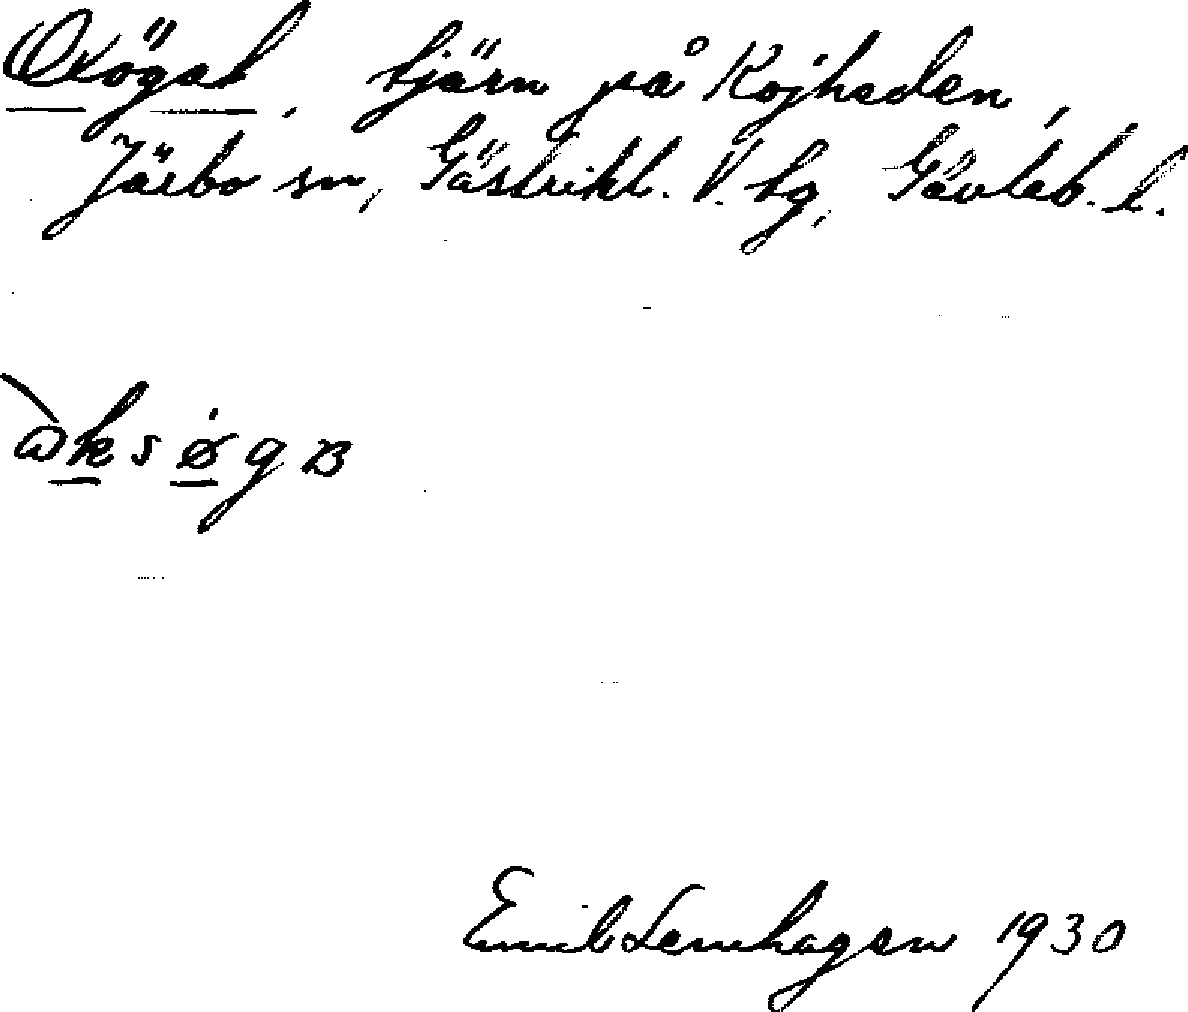 Oxögat, tjärn på Kojheden,
Järbo sn, Gästrikl. V. tg, Gävleb. l.
`ωksǿgʙ
Emil Lernhagen 1930